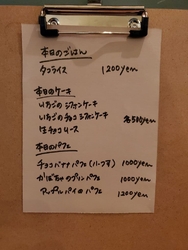 本日のごはん
タコライス 1200yen
本日のケーキ
いちごのシフォンケーキ
いちごのチョコシフォンケーキ 各500yen
生チョコムース
本日のパフェ
チョコバナナパフェ(ハーフ可) 1000yen
かぼちゃのプリンパフェ 1000yen
アップルパイのパフェ 1200yen